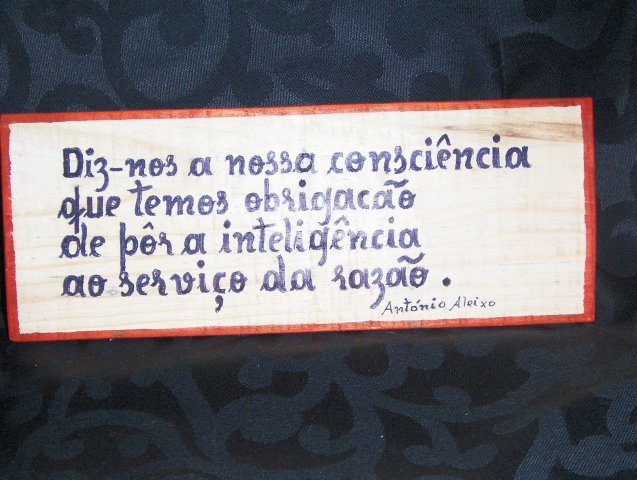 Diz-nos a nossa consciência
que temos obrigacão
de pôr a inteligência
ao serviço da razão.
António Aleixo